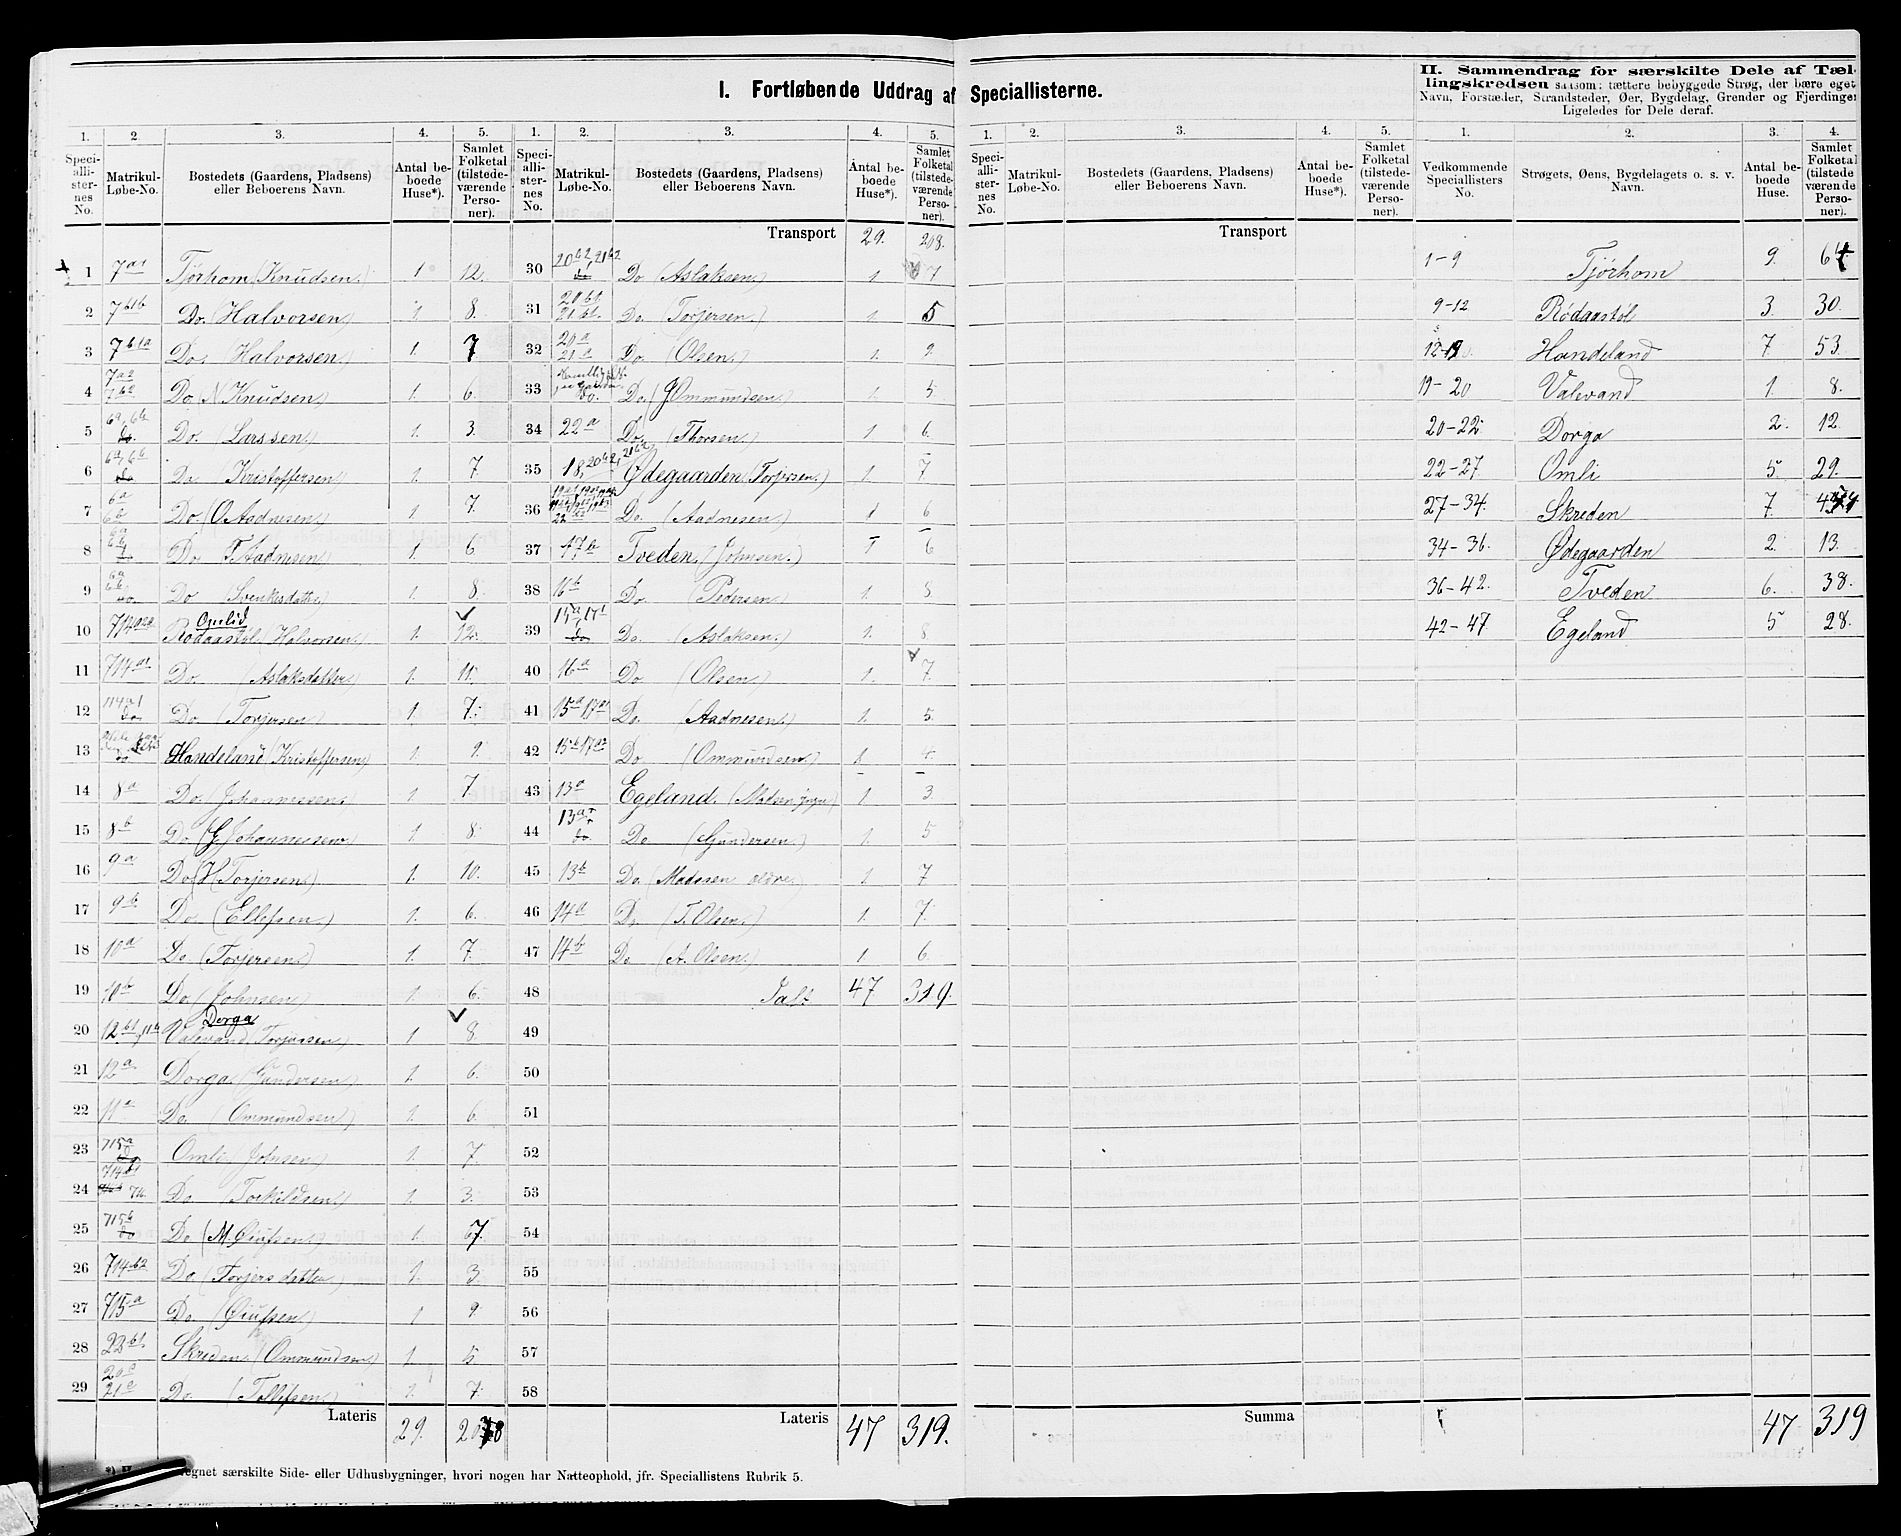 I. Fortløbende Uddrag af Speciallisterne.
II. Sammendrag for særskilte Dele af Tæl-
lingskredsen saasom: tættere bebyggede Strøg, der bære eget
Navn, Forstæder, Strandsteder, Øer, Bygdelag, Grender og Fjerdinger
Ligeledes for Dele deraf.
1. 2. 3. 4. 5. 1. 2. 3. 4. 5.
Speci-allister-nes No. Matrikul-Løbe-No. Bostedets (Gaardens, Pladsens) eller Beboerens Navn. Antal be-boede Huse*). Samlet Folketal (tilstede-værende Perso-ner).
1 7a1 Tørhom (Knudsen.) 1 12.
2 7b1b Do. (Halvorsen) 1 8.
3 7b1a Do. (Halvorsen.) 1. 7.
4 7a2 7b2 Do. N Knudsen) 1. 6.
5 Do. (Larssen.) 1. 3.
6 Do. Kristoffersen) 1. 7.
7 6a 6b Do. (O. Aadnesen.) 1. 7.
8 Do T. Aadnesen) 1. 6
9 Do (Svenkesdatter) 1. 8.
10 Omlid Rødaastøl (Halvorsen.) 1. 12.
11 Do. (Aslaksdatter) 1. 11.
12 Do (Torjersen.) 1. 7.
13 Handeland (Kristoffersen) 1. 9.
14 8a Do. (Johannessen.) 1 7
15 8b Do (G. Johannessen 1 8
16 9a Do (H Torjersen.) 1. 10.
17 9b Do. (Ellefsen.) 1. 6.
18 10a Do (Torjersen) 1. 7.
19 10b Do (Johnsen) 1. 6.
20 Dorga Valevand (Torjersen) 1 8.
21 12a Dorga. (Gundersen) 1. 6.
22 11a Do. (Ommundsen.) 1. 6.
23 715a Omli (Johnsen) 1. 7
24 Do (Torkildsen.) 1. 3.
25 715b Do (M. 1. 7.
26 714b2 Do (Torjersdatter) 1. 3.
27 715a Do. 1 9.
28 22b1 Skreden. (Ommundsen) 1. 5
29 Do (Tollefsen.) 1. 7.
Lateris 29. 208
Transport 29. 208.
30 20b2, 21b2 Do (Aslaksen.) 1 7
31 20b1 21b1. Do. (Torjersen.) 1. 5
32 20a 21a Do (Olsen.) 1. 9.
33 Do. (J Ommundsen.) 1. 5
34 22a Do. (Thorsen.) 1 6.
35 18, 20b2, 21b2 Ødegaarden (Torjersen.) 1. 7
36 Do. (Aadnesen.) 1 6
37 17b Tveden. (Johnsen.) 1 6
38 16b Do. (Pedersen.) 1. 8
39 Do. (Aslaksen.) 1. 8
40 16a Do (Olsen.) 1. 7.
41 15a 17a1 Do. (Aadnesen.) 1. 5.
42 15b 17a2 Do (Ommundsen.) 1 4.
43 13a Egeland. (Madsen yngre) 1 3
44 Do (Gundersen.) 1. 5
45 13b Do. (Madssen ældre.) 1. 7
46 14a Do (T. Olsen.) 1. 7.
47 14b Do (A. Olsen.) 1 6.
48 Ialt 47 319.
49
50
51
52
53
54
55
56
57
58
Lateris 47 319.
1. 2. 3. 4. 5.
Speci-allister-nes No. Matrikul-Løbe-No. Bostedets (Gaardens, Pladsens) eller Beboerens Navn. Antal be-boede Huse*). Samlet Folketal (tilstede-værende Perso-ner).
Transport
Summa
1. 2. 3. 4.
Vedkommende Speciallisters No. Strøgets, Øens, Bygdelagets o. s. v. Navn. Antal beboede Huse. Samlet Folketal (tilstede-værende Perso-ner).
1-9 Tjørhom 9.
9-12 Rødaastøl 3. 30.
Handeland 7. 53.
19-20 Valevand 1. 8.
20-22 Dorga 2. 12.
22-27 Omli 5 29.
27-34. Skreden 7.
34-36. Ødegaarden 2. 13.
36-42. Tveden 6. 38.
42-47 Egeland 5 28.
47 319
egnet særskilte Side- eller Udhusbygninger, hvori nogen har Natteophold, jfr. Speciallistens Rubrik 5.